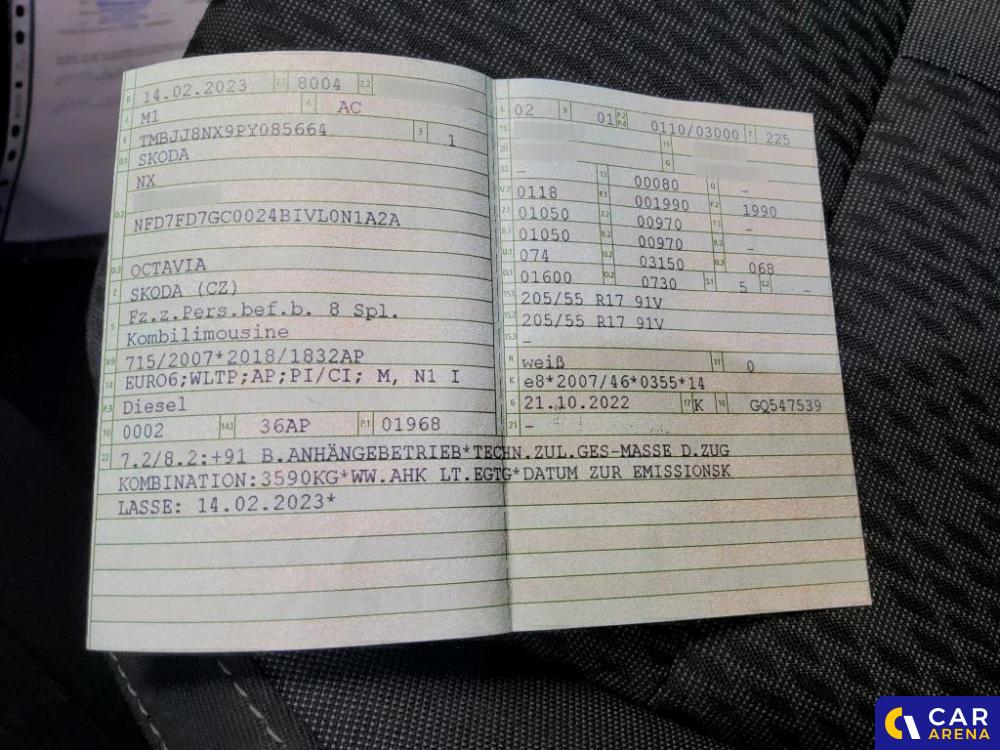 B 14.02.2023 2.1 8004 2.2
J M1 4 AC
E TMBJJ8NX9PY085664 3 1
D.1 SKODA
NX
D.2
NFD7FD7GC0024BIVL0N1A2A
D.3 OCTAVIA
2 SKODA (CZ)
5 Fz.z.Pers.bef.b. 8 Spl.
Kombilimousine
V.9 715/2007*2018/1832AP
14 EURO6;WLTP;AP;PI/CI; M, N1 I
P.3 Diesel
10 0002 14.1 36AP P.1 01968
22 7.2/8.2:+91 B.ANHÄNGEBETRIEB*TECHN.ZUL.GES-MASSE D.ZUG
KOMBINATION:3590KG*WW.AHK LT.EGTG*DATUM ZUR EMISSIONSK
LASSE: 14.02.2023*
L 02 9 01 P.2 P.4 0110/03000 T 225
18 19
20 G
12 – 13 00080 Q –
V.7 0118 F.1 001990 F.2 1990
7.1 01050 7.2 00970 7.3 –
8.1 01050 8.2 00970 8.3 –
U.1 074 U.2 03150 U.3 068
O.1 01600 O.2 0730 S.1 5 S.2 –
15.1 205/55 R17 91V
15.2 205/55 R17 91V
15.3 –
R weiß 11 0
K e8*2007/46*0355*14
6 21.10.2022 17 K 16 GQ547539
21 –
CAR
ARENA